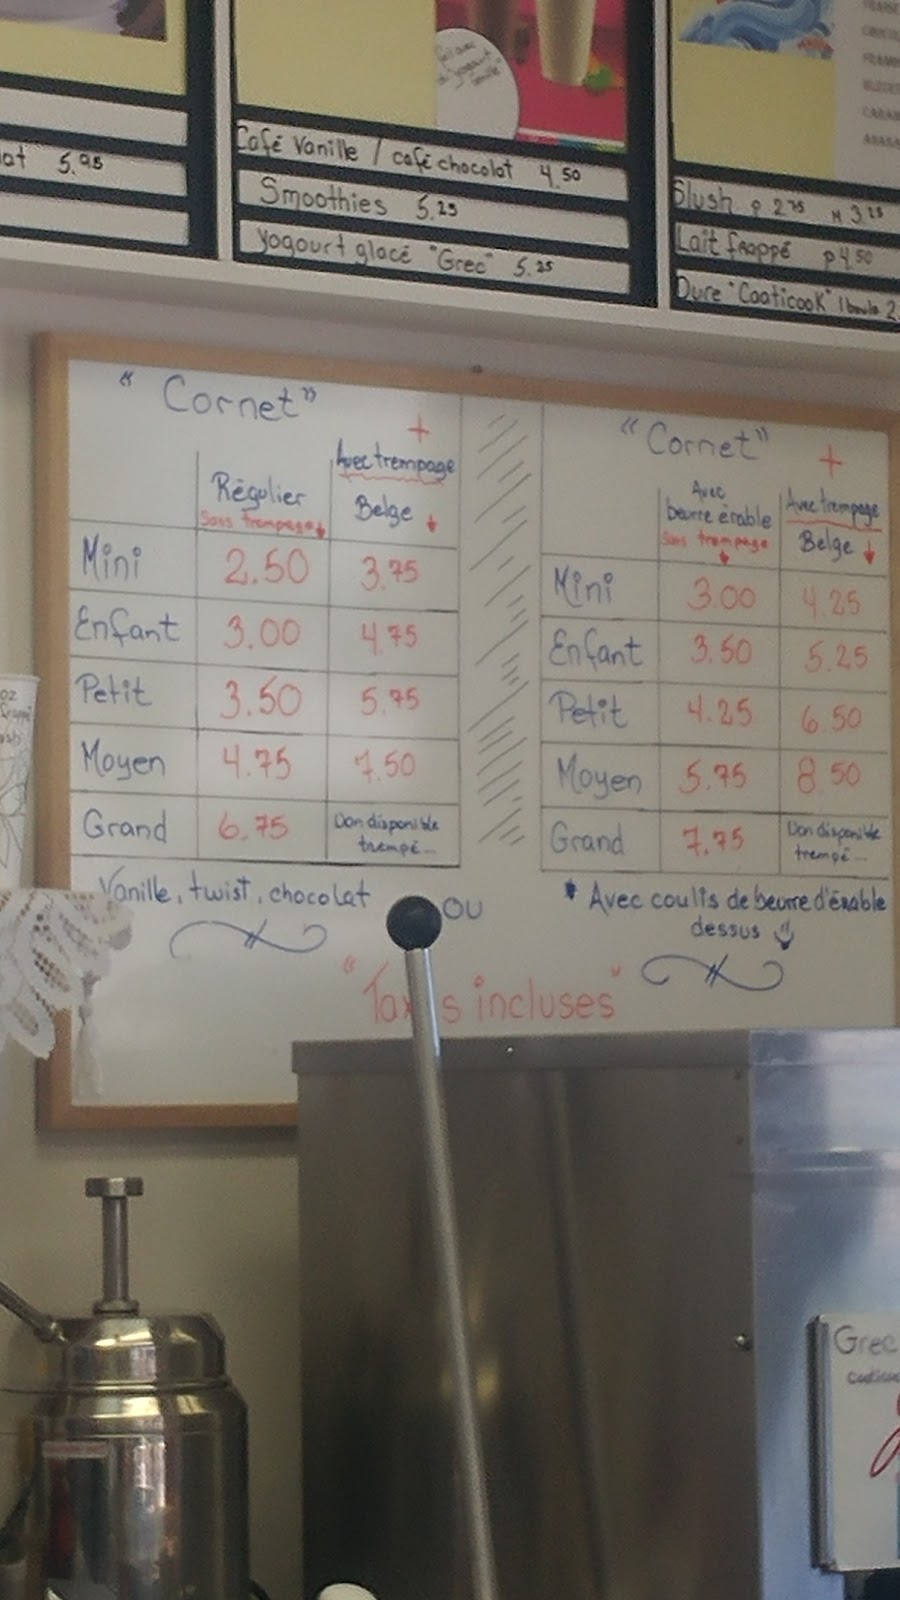 5.95
Café Vanille / café chocolat 4.50
Smoothies 5.25
yogourt glacé "Grec" 5.25
Slush P 2.75 M 3.25
Lait frappé P 4.50
Dure "Coaticook" 1 boule 2.
"Cornet"
+
Régulier
Sans trempage
Avec trempage
Belge
Mini 2.50 3.75
Enfant 3.00 4.75
Petit 3.50 5.75
Moyen 4.75 7.50
Grand 6.75 Non disponible
trempé...
Vanille, twist, chocolat
OU
"Cornet"
+
Avec
beurre érable
Sans trempage
Avec trempage
Belge
Mini 3.00 4.25
Enfant 3.50 5.25
Petit 4.25 6.50
Moyen 5.75 8.50
Grand 7.75 Non disponible
trempé...
* Avec coulis de beurre d'érable
dessus
"Tax s incluses"
Grec